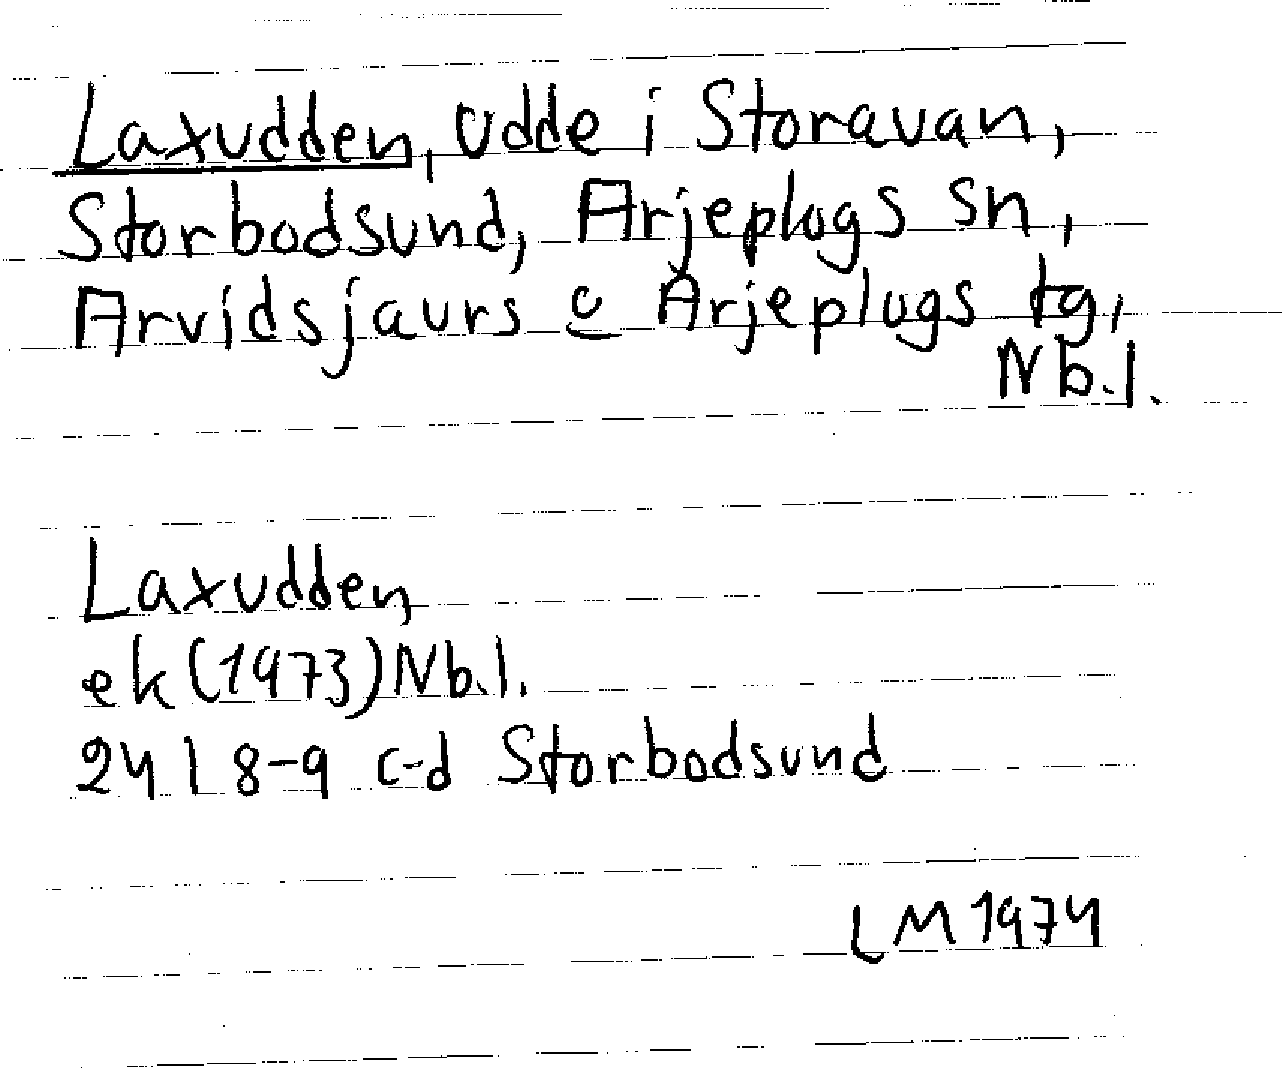 Laxudden, Udde i Storavan,
Storbodsund, Arjeplogs sn,
Arvidsjaurs o Arjeplogs tg,
Nb.l.
Laxudden
ek (1973) Nb.l.
24 I 8-9 c-d Storbodsund
LM 1974